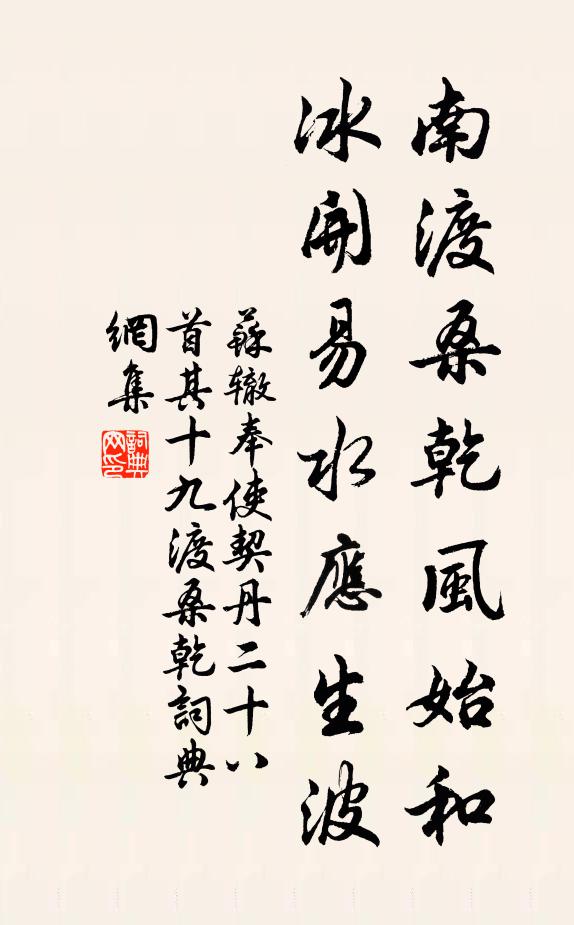 南渡桑乾風始和
冰開易水應生波
蘇轍奉使契丹二十八
首其十九渡桑乾詞典
網集
詞典網印